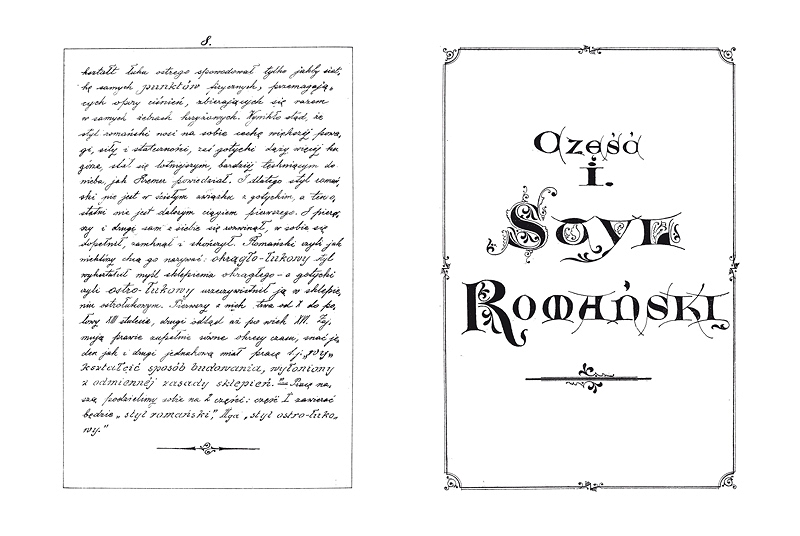 8.
kształt łuku ostrego spowodował tylko jakby siat,
kę samych punktów fizycznych, przemagają,
cych wpory ciśnień, zbierających się razem
w samych żebrach krzyżowych. Wynikło stąd, że
styl romański nosi na sobie cechę większej powa,
gi, siły i stateczności, zaś gotycki dąży więcej ku
górze, stał się lotniejszym, bardziej technącym do
nieba, jak Kremer powiedział. I dlatego styl romań,
ski nie jest w ścisłym związku z gotyckim, a ten o,
statni nie jest dalszym ciągiem pierwszego. I pierw,
szy i drugi sam z siebie się rozwinął, w sobie się
dopełnił, zamknął i skończył. Romański czyli jak
niektórzy chcą go nazywać: okrągło-łukowy styl
wykształcił myśl sklepienia okrągłego - a gotycki
czyli ostro-łukowy urzeczywistnił ją w sklepie,
niu ostrołukowem. Pierwszy z nich trwa od X do po,
łowy XIII stulecia, drugi odtąd aż po wiek XVI. Zaj,
mują prawie zupełnie równe okresy czasu, znać je,
den jak i drugi jednakową miał pracę t.j. „wy„
kształcić sposób budowania, wyłoniony
z odmiennej zasady sklepień. Pracę na,
szą podzielimy sobie na 2 części: część I zawierać
będzie „styl romański", IIga „styl ostro-łuko„
wy."
Część
I.
Styl
Romański